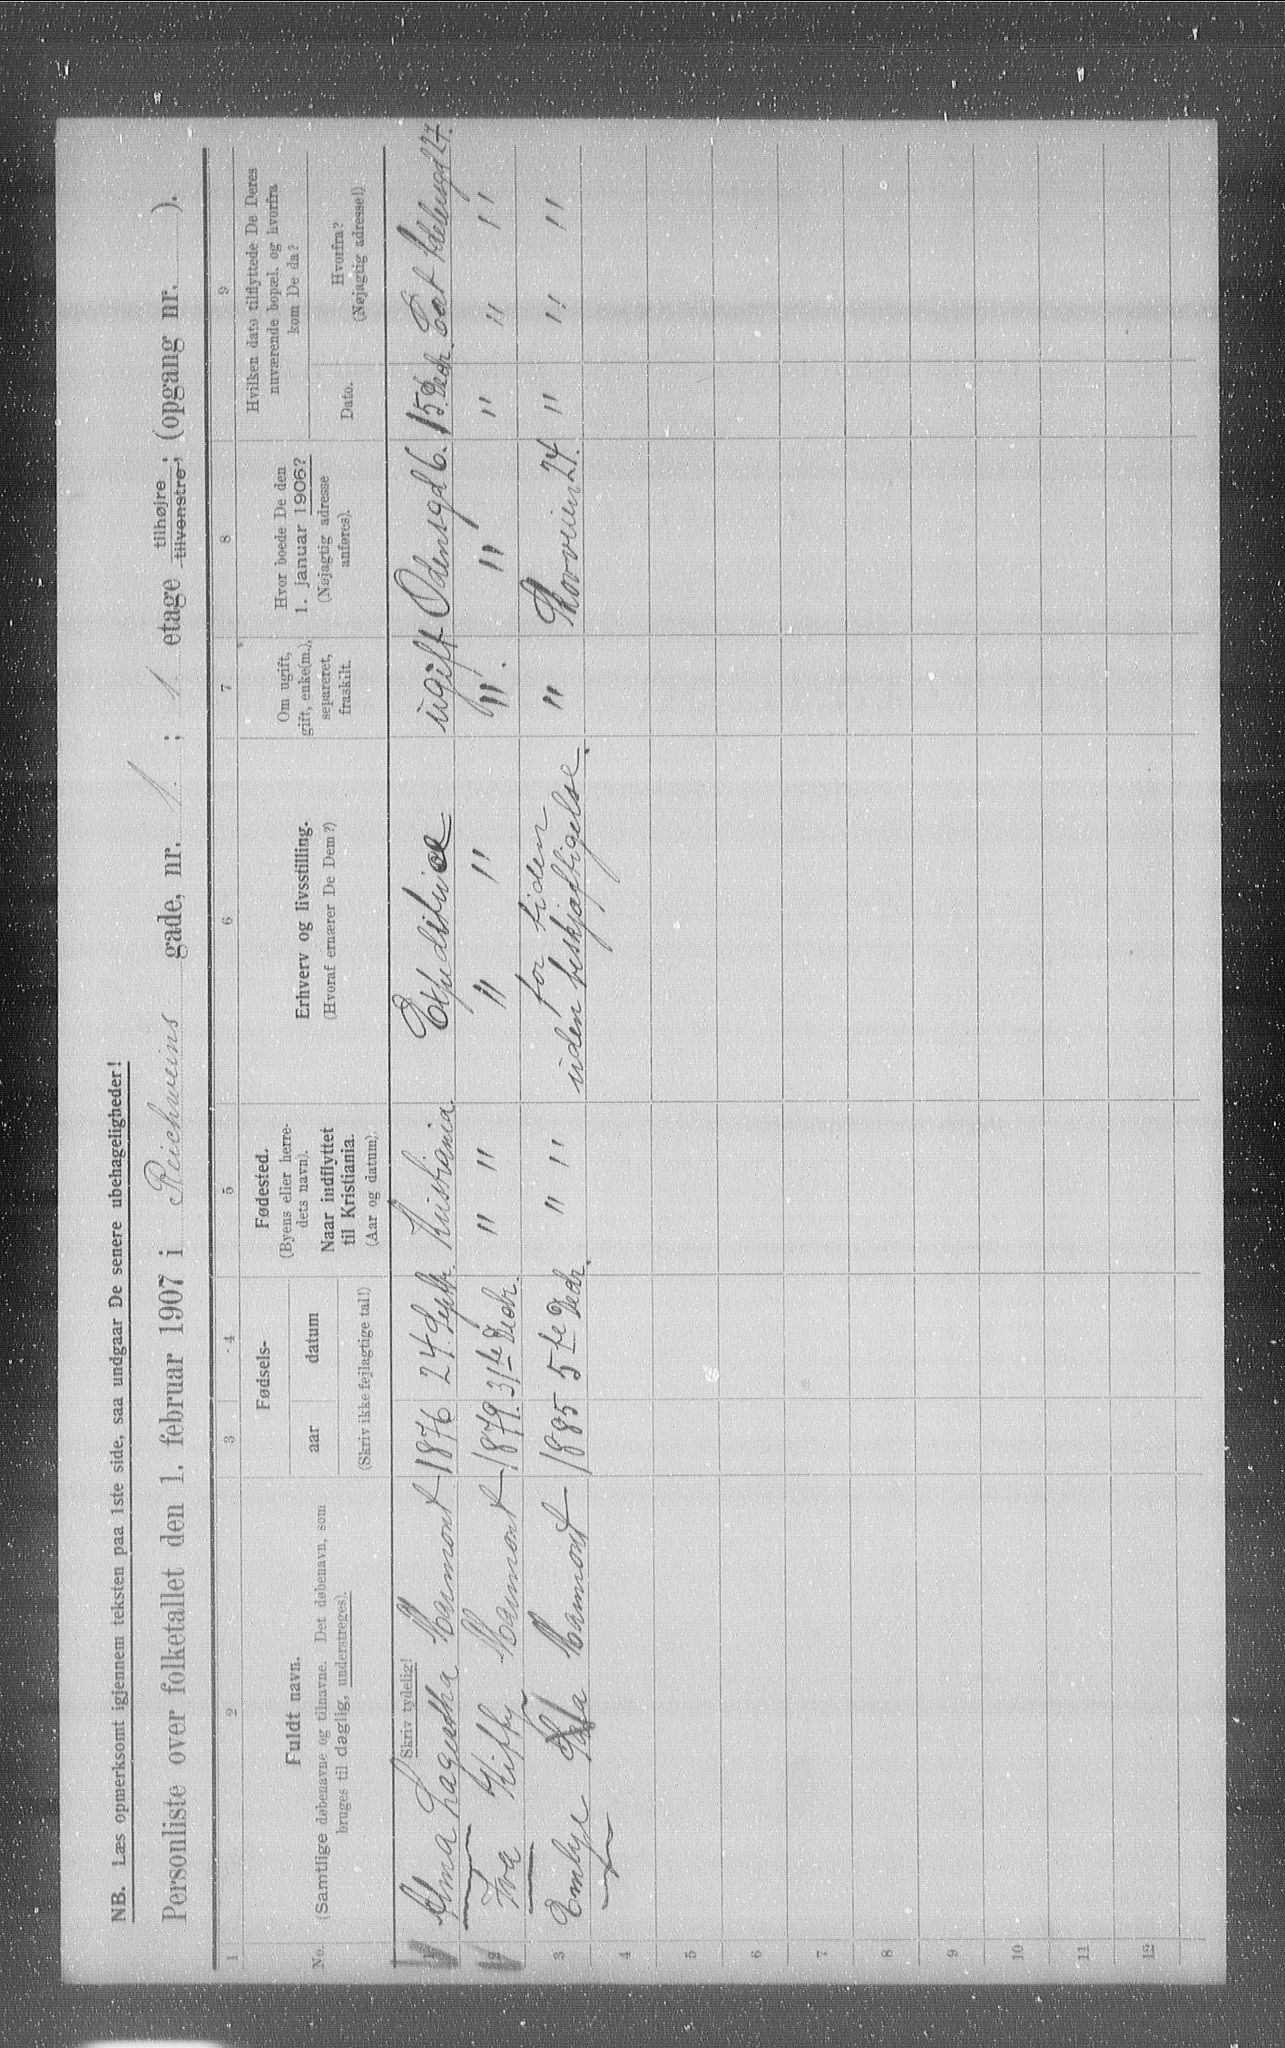 NB. Læs opmerksomt igjennem teksten paa 1ste side, saa undgaar De senere ubehageligheder!
Personliste over folketallet den 1. februar 1907 i Reichweins gade, nr. 1. ; 1 etage tilhøjre ; tilvenstre ; (opgang nr. ).
1 2 3 4 5 6 7 8 9
No.
Fuldt navn.
(Samtlige døbenavne og tilnavne. Det døbenavn, som
bruges til daglig, understreges).
Skriv tydelig!
Fødsels-
aar datum
(Skriv ikke fejlagtige tal!)
Fødested.
(Byens eller herre-
dets navn).
Naar indflyttet
til Kristiania.
(Aar og datum).
Erhverv og livsstilling.
(Hvoraf ernærer De Dem?)
Om ugift,
gift, enke(m.),
separeret,
fraskilt.
Hvor boede De den
1. januar 1906?
(Nøjagtig adresse
anføres).
Hvilken dato tilflyttede De Deres
nuværende bopæl, og hvorfra
kom De da?
Dato.
Hvorfra?
(Nøjagtig adresse!)
1 Alma 1876 24. Septbr. Kristiania. ugift Odensgd 6. 15. Decbr.
2 1879. 31te Decbr. " " " " " " " " " "
3 1885 5te Decbr. " " for tiden
uden beskjæftigelse. " Skovveien 24. " " "
4
5
6
7
8
9
10
11
12